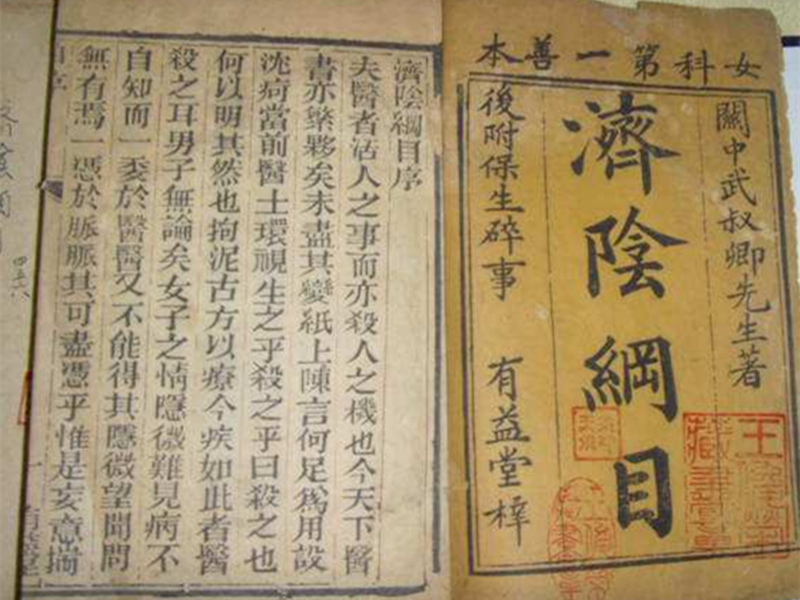 女科第一善本
關中武叔卿先生著
濟陰綱目
後附保生碎事 有益堂梓
濟陰綱目序
夫醫者活人之事而亦殺人之機也今天下醫
書亦樂夥矣未盡其變紙上陳言何足爲用設
沈疴當前醫士環視生之乎殺之乎曰殺之也
何以明其然也拘泥古方以療今疾如此者醫
殺之耳男子無論矣女子之情隱微難見病不
自知而一委於醫醫又不能得其隱微望聞問
無有焉一憑於脈脈其可盡憑乎惟是妄意揣
自序 一
四五六